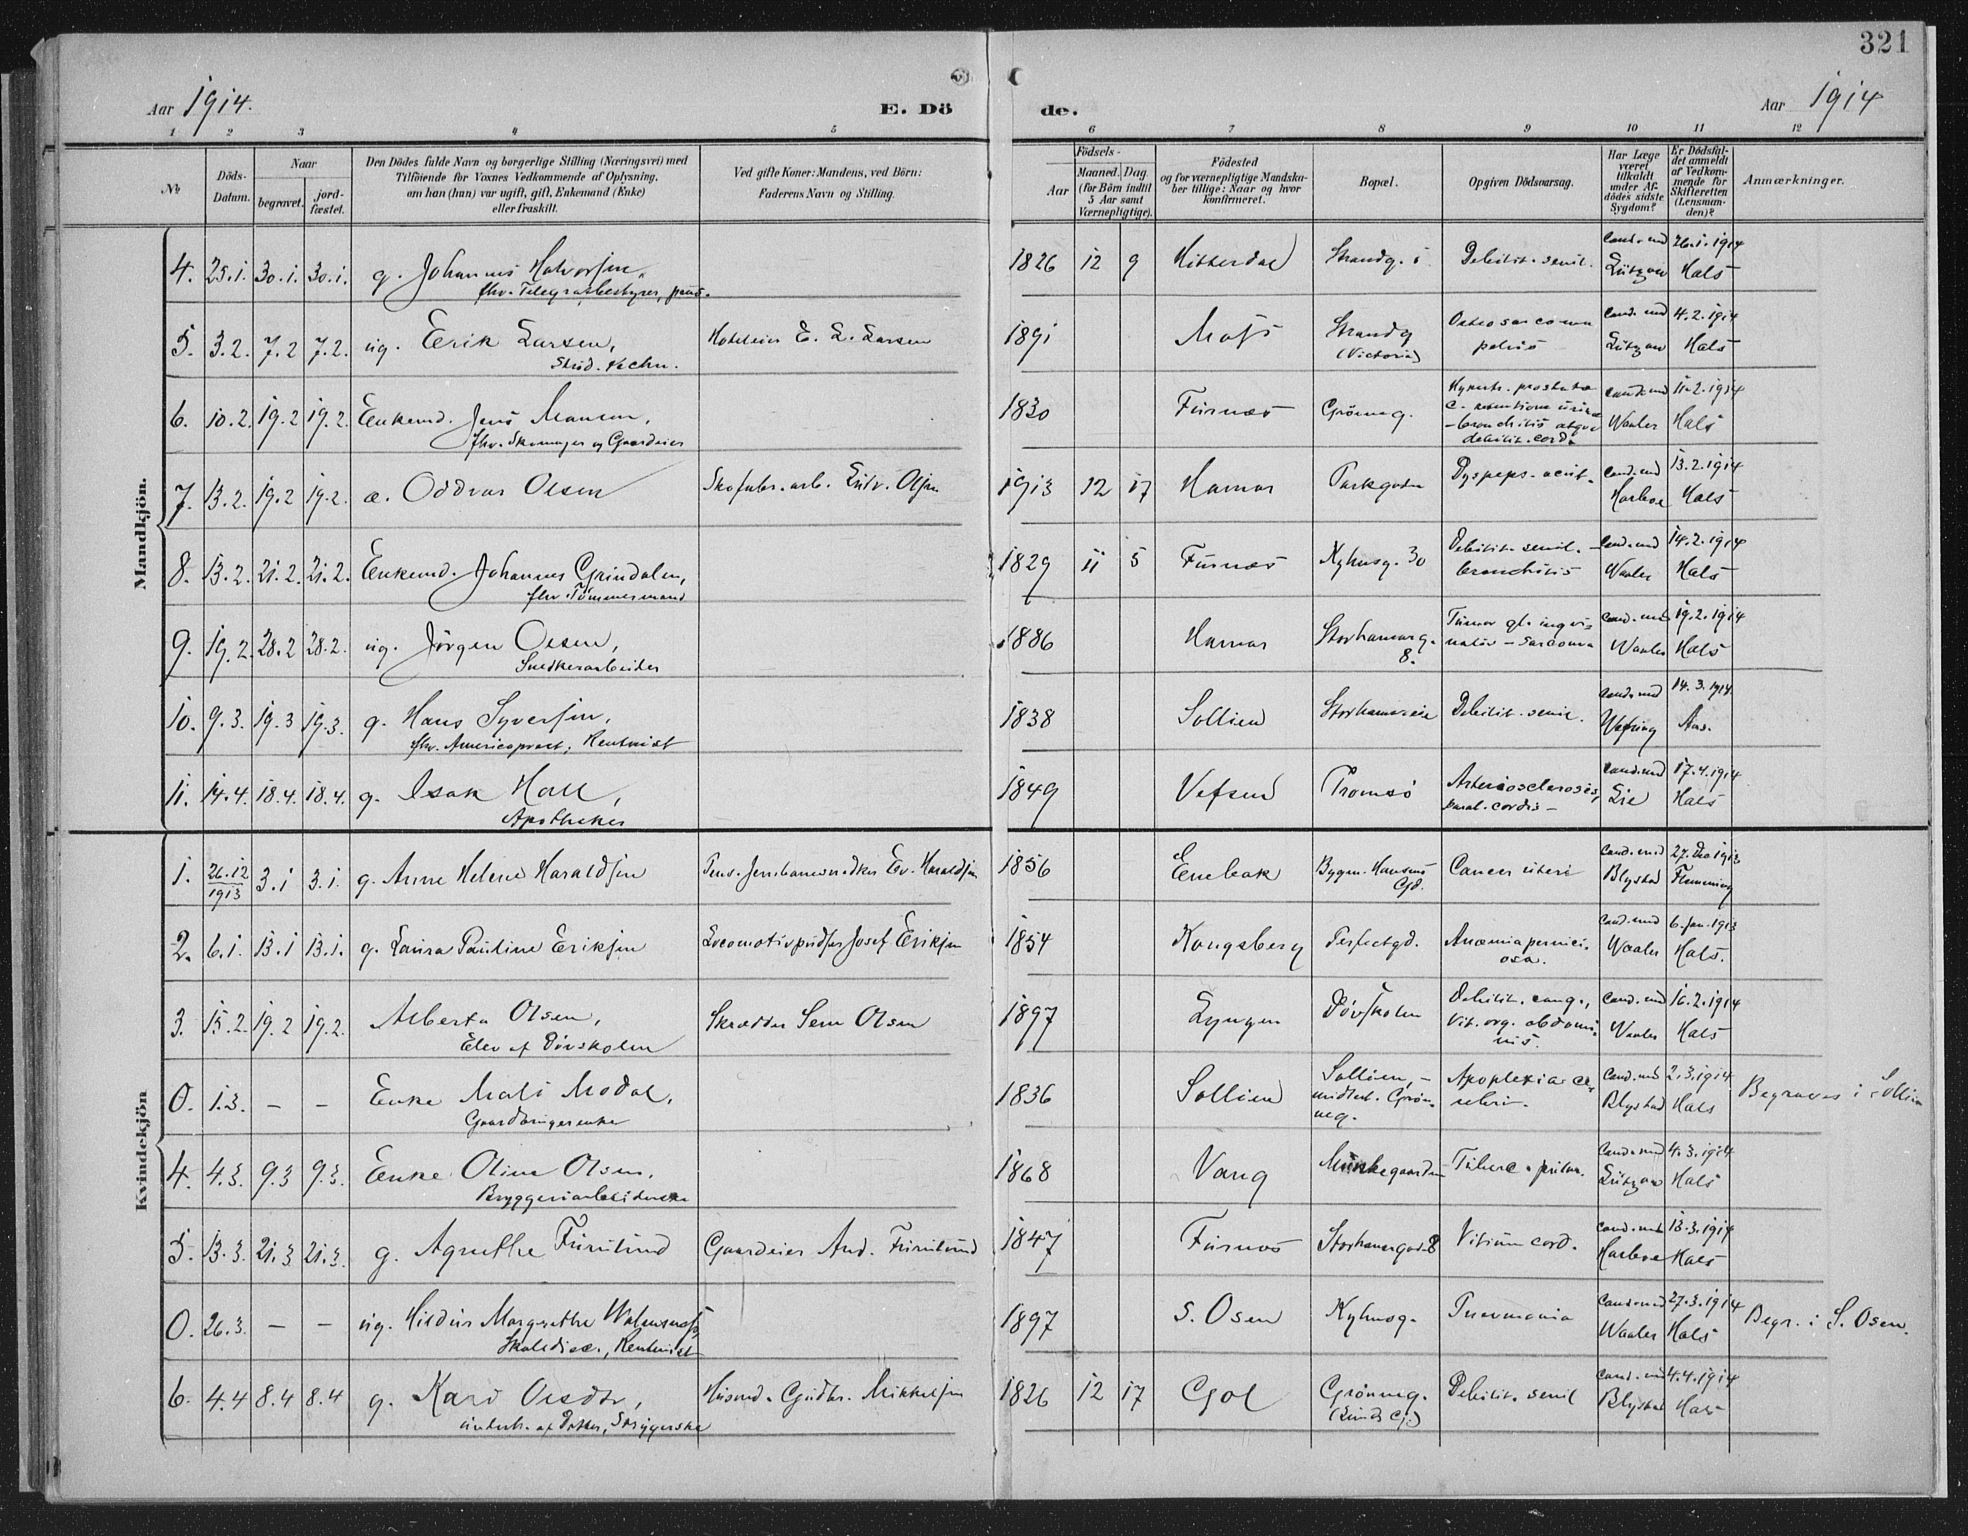 321
Aar 1914.
E. Dö
de.
Aar 1914
1 2 3 4 5 6 7 8 9 10 11 12
No
Döds-Datum.
Naar
begravet. jord-fæstet.
Den Dödes fulde Navn og borgerlige Stilling (Næringsvei) med
Tilföiende for Voxnes Vedkommende af Oplysning,
om han (hun) var ugift, gift, Enkemand (Enke)
eller fraskilt.
Ved gifte Koner: Mandens, ved Börn:
Faderens Navn og Stilling.
Födsels-
Aar Maaned. Dag
(for Börn indtil
5 Aar samt
Værnepligtige).
Födested
og for værnepligtige Mandska-
ber tillige: Naar og hvor
konfirmeret.
Bopæl.
Opgiven Dödsaarsag.
Har Læge
været
tilkaldt
under Af-
dödes sidste
Sygdom?
Er Dödsfal-
det anmeldt
af Vedkom-
mende for
Skifteretten
(Lensman-
den)?
Anmærkninger.
Mandkjön.
4. 25.1. 30.1. 30.1. g. Johannes Halvorsen, 1826 12 9 Hitterdal Strandg. Debilit. senil. cand. med Lützow 26.1.1914 Hals
fhv. Telegrafbestyrer, pens.
5. 3.2. 7.2 7.2. ug. Erik Larsen, Hoteleier E. L. Larsen 1891 Strandg (Victoria) Osteosarcoma pelvis cand. med Lützow 4.2.1914 Hals
Stud. techn.
6. 10.2. 19.2 19.2. Enkemd. Jens Mansen, 1830 Furnæs Grönneg. Hypertr. prostatæ c. retentione urinæ – bronchitis atque debilit. cord. cand. med Waaler 11.2.1914 Hals
fhv. Skomager og Gaardeier
7. 13.2. 19.2 19.2. æ. Oddvar Olsen Skofabr. arb. Olsen 1913 12 17 Hamar Parkgaden Dyspeps. acut. cand. med Harboe 13.2.1914 Hals
8. 13.2. 21.2. 21.2. Enkemd. Johannes Grindalen, 1829 11 5 Furnæs Nyhusg. 30 Debilit. senil. – bronchitis cand. med Waaler 14.2.1914 Hals
fhv. Tömmermand
9. 19.2. 28.2 28.2. ug. Jörgen Olsen, 1886 Hamar Storhamarg. 8. Tumor gl. – sarcoma cand. med Waaler 19.2.1914 Hals
Snedkerarbeider
10. 9.3. 19.3 19.3. g. Hans Syversen, 1838 Sollien Debilit. senil. cand. med 14.3.1914 Aas.
fhv. Rentenist
11. 14.4. 18.4. 18.4. g. Isak Hall, 1849 Vefsen Tromsö Arteriosclerosis, paral. cordis – cand. med Lie 17.4.1914 Hals
Apotheker
Kvindekjön
1. 26.12 1913 3.1 3.1. g. Anne Helene Haraldsen Ev. Haraldsen 1856 Enebak Bygm. Hansens Gd. Cancer uteri cand. med Blystad 27. Dec 1913 Flemming
2. 6.1. 13.1 13.1. g. Laura Pauline Eriksen Locomotivpudser Josef Eriksen 1854 Kongsberg Perfectgd. Anæmia perniciosa. cand. med Waaler 6. Jan. 1913 Hals.
3. 15.2. 19.2 19.2. Alberta Olsen, Skrædder Sem Olsen 1897 Lyngen Dövskolen Debilit. cong., Vit. org. abdominis. cand. med Waaler 16.2.1914 Hals
Elev af Dövskolen
0. 1.3. – – Enke Mali Modal, 1836 Sollien Sollien, – midlert. Grönneg. Apoplexia cerebri. cand. med Blystad 2.3.1914 Hals Begraves i Sollien
Gaardbrugerenke
4. 4.3. 9.3 9.3. Enke Oline Olsen, 1868 Vang Munkegaarden Tuberc. pulm. cand. med Lützow 4.3.1914 Hals
Bryggeriarbeiderske
5. 13.3. 21.3 21.3. g. Agnethe Furulund Gaardeier And. Furulund 1847 Furnes Storhamargad. 8 Vitium cord. cand. med Harboe 13.3.1914 Hals
0. 26.3. – – ug. Margrethe 1897 S. Osen Nyhusg. Pneumonia cand. med Waaler 27.3.1914 Hals Begr. i S. Osen.
6. 4.4 8.4 8.4 g. Kari Olsdtr, Husmd. Gudbr. Mikkelsen 1826 12 17 Gol Grönneg. Debilit. senil cand. med Blystad 4.4.1914 Hals
underh. af Datter,